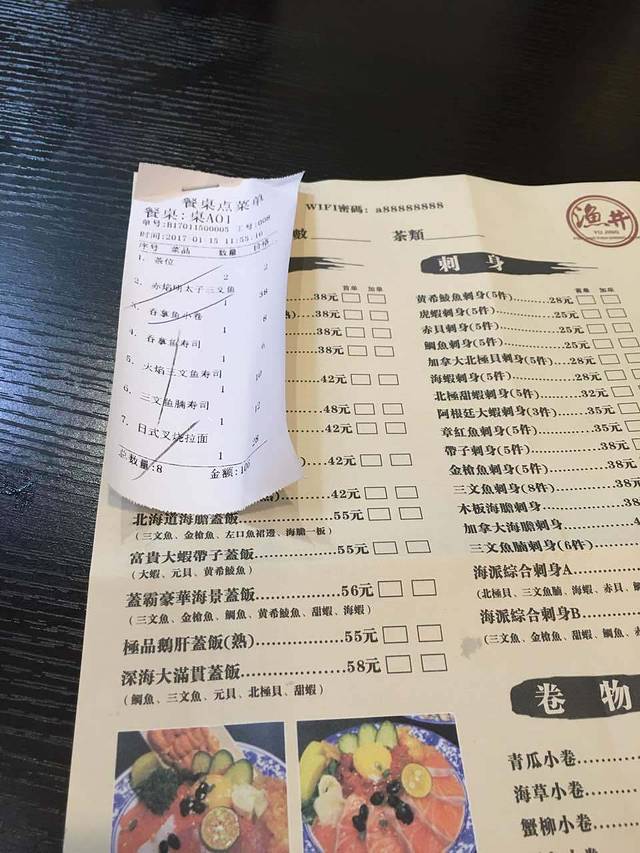 餐桌点菜单
餐桌:桌A01
单号:B17011500005 工号:008
时间:2017-01-15 11:55:10
序号 菜品 数量 价格
1. 茶位
2 2
2. 赤焰明太子三文鱼
1 38
3. 吞拿鱼小卷
1 8
4. 吞拿鱼寿司
1 6
5. 火焰三文鱼寿司
1 10
6. 三文鱼腩寿司
1 12
7. 日式叉烧拉面
1 28
总数量:8 金额:106
WIFI密碼: a88888888
數 茶類
漁井
YU JING
首单 加单
38元
38元
38元
38元
42元
48元
42元
42元
北海道海膽蓋飯 55元
(三文魚、金槍魚、左口魚裙邊、海膽一板)
富貴大蝦帶子蓋飯 55元
(大蝦、元貝、黄希鯪魚)
蓋霸豪華海景蓋飯 56元
(三文魚、金槍魚、鯛魚、黄希鯪魚、甜蝦、海蝦)
極品鵝肝蓋飯(熱) 55元
深海大滿貫蓋飯 58元
(鯛魚、三文魚、元貝、北極貝、甜蝦)
刺身
首单 加单
黄希鯪魚刺身(5件) 28元
虎蝦刺身(5件) 25元
赤貝刺身(5件) 25元
鯛魚刺身(5件) 25元
加拿大北極貝刺身(5件) 28元
海蝦刺身(5件) 28元
北極甜蝦刺身(5件) 32元
阿根廷大蝦刺身(3件) 35元
章紅魚刺身(5件) 35元
帶子刺身(5件) 38元
金槍魚刺身(5件) 38元
三文魚刺身(8件) 38
木板海膽刺身 38
加拿大海膽刺身
三文魚腩刺身(6件)
海派綜合刺身A
(北極貝、三文魚腩、海蝦、赤貝、鯛
海派綜合刺身B
(三文魚、金槍魚、甜蝦、鯛魚、赤
卷物
青瓜小卷
海草小卷
蟹柳小卷
小卷